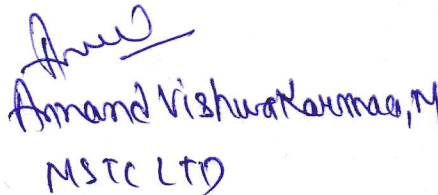 Annand Vishwakarmaa, M
MSTC LTD